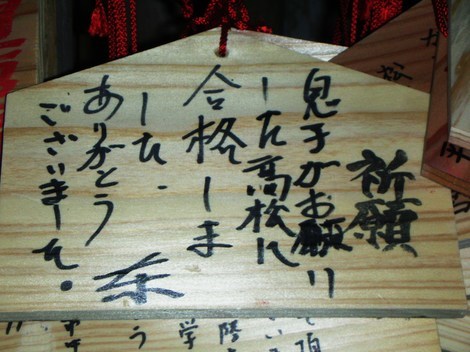 祈願
息子がお願り
した高松に
合格しま
した.
ありがとう
ございました。
学
う